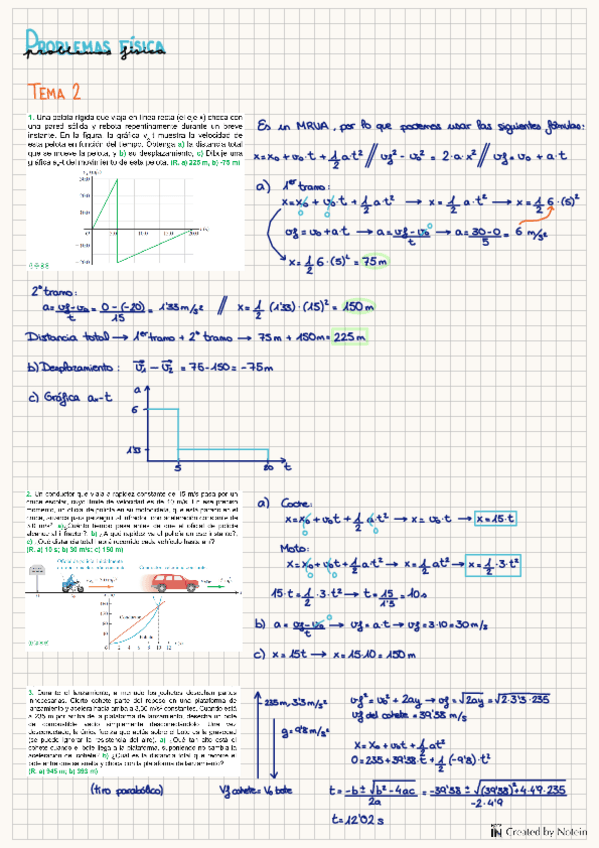 PROBLEMAS FÍSICA
problemas física
TEMA 2
1. Una pelota rígida que viaja en línea recta (el eje x) choca con
una pared sólida y rebota repentinamente durante un breve
instante. En la figura, la gráfica vx-t muestra la velocidad de
esta pelota en función del tiempo. Obtenga a) la distancia total
que se mueve la pelota, y b) su desplazamiento, c) Dibuje una
gráfica ax-t del movimiento de esta pelota. (R. a) 225 m, b) -75 m)
Es un MRUA, por lo que podemos usar las siguientes fórmulas:
x=x₀+v₀·t+1/2 a·t² // vf²-v₀² = 2·a·x² // vf=v₀+a·t
a) 1er tramo:
x=x₀+v₀·t+1/2 a·t² → x=1/2 a·t² → x=1/2 6·(5)²
vf=v₀+a·t → a=vf-v₀/t → a=30-0/5 = 6 m/s²
x=1/2 6·(5)² = 75m
2º tramo:
a=vf-v₀/t = 0-(-20)/15 = 1'33 m/s² // x=1/2 (1'33)·(15)² = 150m
Distancia total → 1er tramo + 2º tramo → 75m + 150m = 225m
b) Desplazamiento: v₁ - v₂ = 75-150 = -75m
c) Gráfica aₓ-t
a
6
1'33
5
20
t
2. Un conductor que viaja a rapidez constante de 15 m/s pasa por un
cruce escolar, cuyo límite de velocidad es de 10 m/s. En ese preciso
momento, un oficial de policía en su motocicleta, que está parado en el
cruce, arranca para perseguir al infractor, con aceleración constante de
3.0 m/s². a) ¿Cuánto tiempo pasa antes de que el oficial de policía
alcance al infractor? b) ¿A qué rapidez va el policía en ese instante?
c) ¿Qué distancia total habrá recorrido cada vehículo hasta ahí?
(R. a) 10 s; b) 30 m/s; c) 150 m)
a) Coche:
x=x₀+v₀·t+1/2 a·t² → x=v₀·t → x=15·t
Moto:
x=x₀+v₀·t+1/2 a·t² → x=1/2 a·t² → x=1/2·3·t²
15·t=1/2·3·t² → t=15/1'5 = 10s
b) a=vf-v₀/t → vf=a·t → vf=3·10=30 m/s
c) x=15t → x=15·10=150m
0 2 4 6 8 10 12
3. Durante el lanzamiento, a menudo los cohetes desechan partes
innecesarias. Cierto cohete parte del reposo en una plataforma de
lanzamiento y acelera hacia arriba a 3.30 m/s² constantes. Cuando está
a 235 m por arriba de la plataforma de lanzamiento, desecha un bote
de combustible vacío simplemente desconectándolo. Una vez
desconectado, la única fuerza que actúa sobre el bote es la gravedad
(se puede ignorar la resistencia del aire). a) ¿Qué tan alto está el
cohete cuando el bote llega a la plataforma, suponiendo no cambia la
aceleración del cohete? b) ¿Cuál es la distancia total que recorre el
bote entre que se suelta y choca con la plataforma de lanzamiento?
(R. a) 945 m; b) 393 m)
235m, 3'3 m/s²
g=9'8 m/s²
vf²=v₀²+2ay → vf=√2ay = √2·3'3·235
vf del cohete = 39'38 m/s
x=x₀+v₀t+1/2 at²
0=235+39'38·t+1/2(-9'8)·t²
(tiro parabólico)
Vf cohete = V₀ bote
t=-b±√b²-4ac/2a = -39'38±√(39'38)²+4·4'9·235/-2·4'9
t=12'02 s
Created by Notein